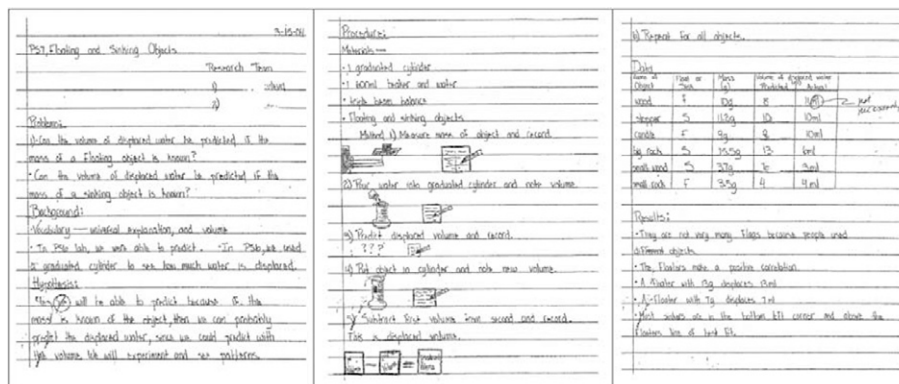 3-15-04
PS7, Floating and Sinking Objects
Research Team
1)
2)
Problem:
1) Can the volume of displaced water be predicted if the
mass of a floating object is known?
• Can the volume of displaced water be predicted if the
mass of a sinking object is known?
Background:
Vocabulary — universal explanation, and volume
• In PS6 lab, we were able to predict. • In PS6, we used
a graduated cylinder to see how much water is displaced.
Hypothesis:
will be able to predict because if the
mass is known of the object, then we can probably
predict the displaced water, since we could predict with
volume. We will experiment and see patterns.
Procedure:
Materials —
• 1 graduated cylinder
• 1 600ml beaker and water
• triple beam balance
• Floating and sinking objects
Method 1) Measure mass of object and record.
2) Pour water into graduated cylinder and note volume.
3) Predict displaced volume and record.
? ? ?
4) Put object in cylinder and note new volume.
5) Subtract first volume from second and record.
This is displaced volume.
6) Repeat for all objects.
Data
Name of Object Float or Sink Mass (g) Volume of displaced water Predicted Actual
wood F 8 not
stopper S 10 10ml
candle F 9g 8 10ml
big rock S 13 6ml
small wood S 3ml
small rock F 4 4ml
Results:
• They are not very many flags because people used
different objects.
• The floaters make a positive correlation
• A floater with 13g displaces 13ml
• A floater with 7g displaces 7ml
• Most sinkers are in the bottom left corner and above the
floaters line of best fit.